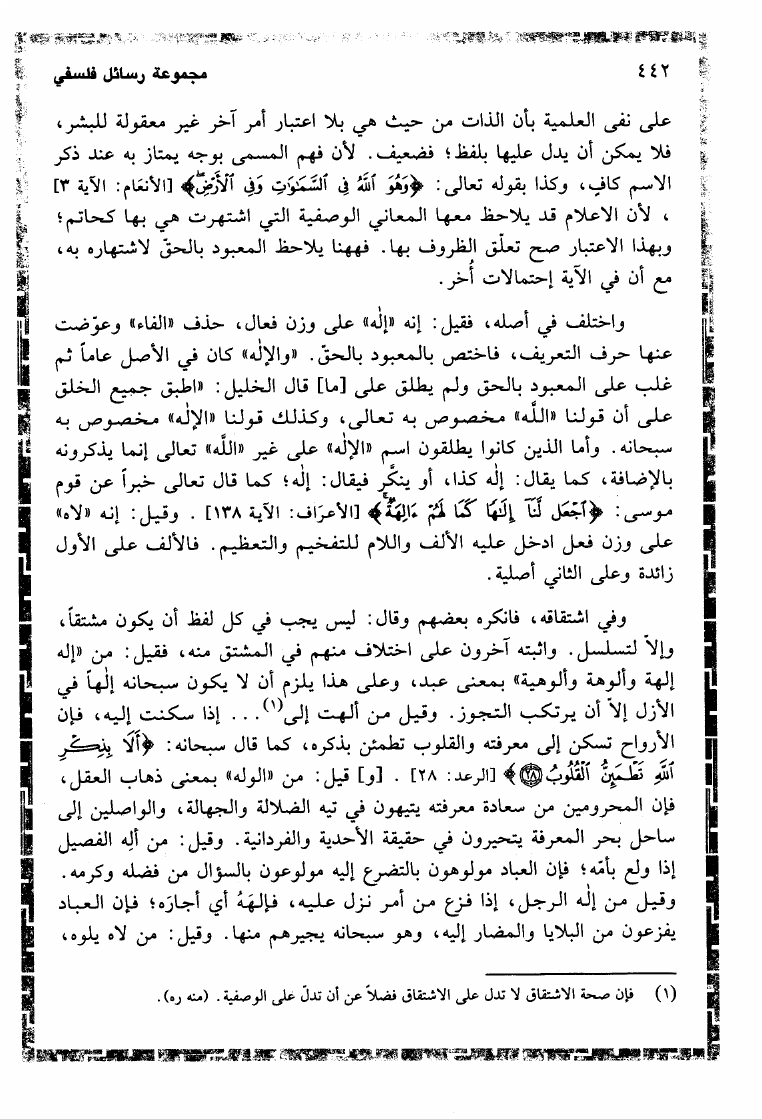 ٤٤٢
مجموعة رسائل فلسفي
على نفى العلمية بأن الذات من حيث هي بلا اعتبار أمر آخر غير معقولة للبشر،
فلا يمكن أن يدل عليها بلفظ؛ فضعيف. لأن فهم المسمى بوجه يمتاز به عند ذكر
الاسم كافٍ، وكذا بقوله تعالى: ﴿وَهُوَ ٱللَّهُ فِى ٱلسَّمَٰوَٰتِ وَفِى ٱلْأَرْضِ﴾ [الأنعَام: الآية ٣]
، لأن الاعلام قد يلاحظ معها المعاني الوصفية التي اشتهرت هي بها كحاتم؛
وبهذا الاعتبار صح تعلّق الظروف بها. فههنا يلاحظ المعبود بالحقّ لاشتهاره به،
مع أن في الآية إحتمالات أُخر.
واختلف في أصله، فقيل: إنه «إلٰه» على وزن فعال، حذف «الفاء» وعوّضت
عنها حرف التعريف، فاختص بالمعبود بالحقّ. «والإلٰه» كان في الأصل عاماً ثم
غلب على المعبود بالحق ولم يطلق على [ما] قال الخليل: «اطبق جميع الخلق
على أن قولنا «اللَّه» مخصوص به تعالى، وكذلك قولنا «الإلٰه» مخصوص به
سبحانه. وأما الذين كانوا يطلقون اسم «الإلٰه» على غير «اللَّه» تعالى إنما يذكرونه
بالإضافة، كما يقال: إلٰه كذا، أو ينكَّر فيقال: إلٰه؛ كما قال تعالى خبراً عن قوم
موسى: ﴿ٱجْعَل لَّنَآ إِلَٰهًا كَمَا لَهُمْ ءَالِهَةٌ﴾ [الأعرَاف: الآية ١٣٨] . وقيل: إنه «لاه»
على وزن فعل ادخل عليه الألف واللام للتفخيم والتعظيم. فالألف على الأول
زائدة وعلى الثاني أصلية.
وفي اشتقاقه، فانكره بعضهم وقال: ليس يجب في كل لفظ أن يكون مشتقاً،
وإلاّ لتسلسل. واثبته آخرون على اختلاف منهم في المشتق منه، فقيل: من «إله
إلهة وألوهة وألوهية» بمعنى عبد، وعلى هذا يلزم أن لا يكون سبحانه إلٰهاً في
الأزل إلاّ أن يرتكب التجوز. وقيل من ألهت إلى(١)... إذا سكنت إليه، فإن
الأرواح تسكن إلى معرفته والقلوب تطمئن بذكره، كما قال سبحانه: ﴿أَلَا بِذِكْرِ
ٱللَّهِ تَطْمَئِنُّ ٱلْقُلُوبُ ۝٢٨﴾ [الرعد: ٢٨] . [و] قيل: من «الوله» بمعنى ذهاب العقل،
فإن المحرومين من سعادة معرفته يتيهون في تيه الضلالة والجهالة، والواصلين إلى
ساحل بحر المعرفة يتحيرون في حقيقة الأحدية والفردانية. وقيل: من أَلِه الفصيل
إذا ولع بأمّه؛ فإن العباد مولوهون بالتضرع إليه مولوعون بالسؤال من فضله وكرمه.
وقيل من إلٰه الرجل، إذا فزع من أمر نزل عليه، فإلهَهُ أي أجارَه؛ فإن العباد
يفزعون من البلايا والمضار إليه، وهو سبحانه يجيرهم منها. وقيل: من لاه يلوه،
(١) فإن صحة الاشتقاق لا تدل على الاشتقاق فضلاً عن أن تدلّ على الوصفية. (منه ره).